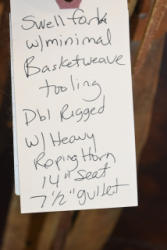 Swell fork
w/minimal
Basketweave
tooling
Dbl Rigged
w/ Heavy
Roping Horn
14" Seat
7 1/2" gullet